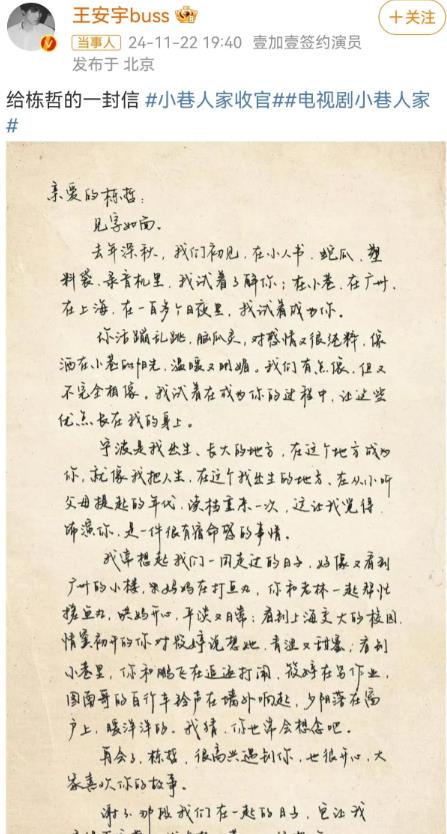 王安宇buss
+关注
当事人 24-11-22 19:40 壹加壹签约演员
发布于 北京
给栋哲的一封信 #小巷人家收官##电视剧小巷人家
#
亲爱的栋哲:
见字如面。
去年深秋,我们初见,在小人书、蛇瓜、塑
料袋、录音机里,我试着了解你;在小巷、在广州、
在上海,在一百多个日夜里,我试着成为你。
你活蹦乱跳,脑瓜灵,对感情又很纯粹,像
洒在小巷的阳光,温暖又明媚。我们有点像,但又
不完全相像。我试着在成为你的过程中,让这些
优点长在我的身上。
宁波是我出生、长大的地方,在这个地方成为
你,就像我把人生,在这个我出生的地方、在从小听
父母提起的年代,读档重来一次,这让我觉得,
饰演你,是一件很有宿命感的事情。
我常想起我们一同走过的日子,好像又看到
广州的小楼,宋妈妈在打鱼丸,你和老林一起帮忙
搓鱼丸,哄妈开心,平淡又日常;看到上海交大的校园,
情窦初开的你对筱婷说想她,青涩又甜蜜;看到
小巷里,你和鹏飞在追逐打闹,筱婷在写作业,
图南哥的自行车铃声在墙外响起,夕阳落在窗
户上,暖洋洋的。我猜,你也常会想念吧。
再会了,栋哲,很高兴遇到你,也很开心,大
家喜欢你的故事。
谢谢那段我们在一起的日子,它让我